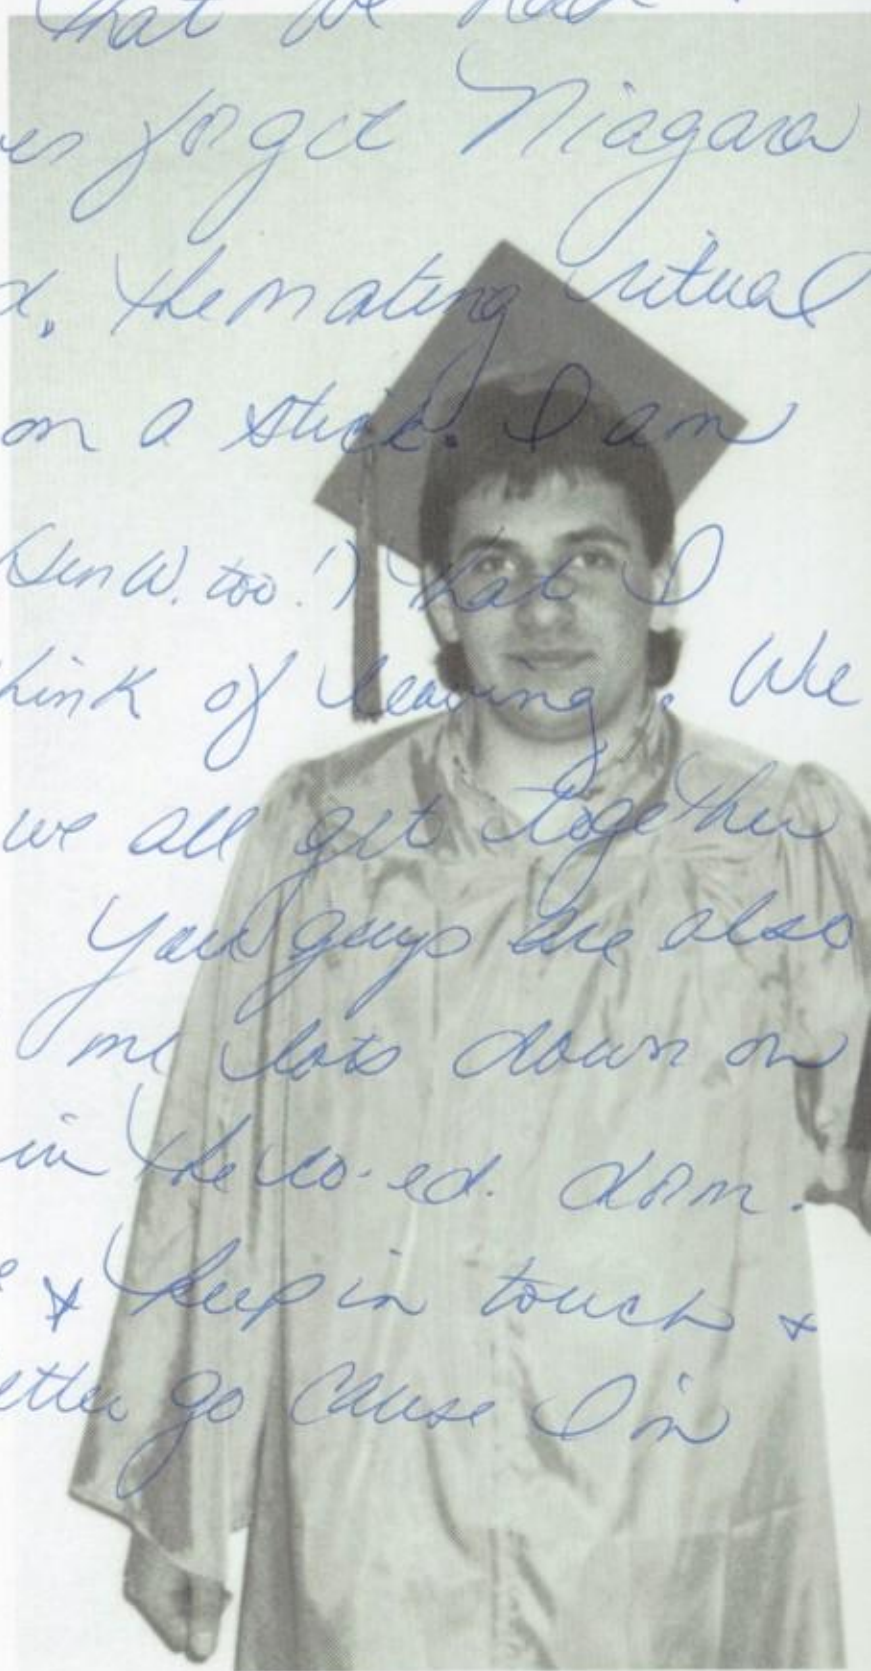 that we had
forget Niagara
d. the mating ritual
on a stick. I am
W. too!) that I
hink of leaving. We
we all get together
You guys are also
me lots down on
in the co-ed. dorm.
& keep in touch &
etter go cause I'm